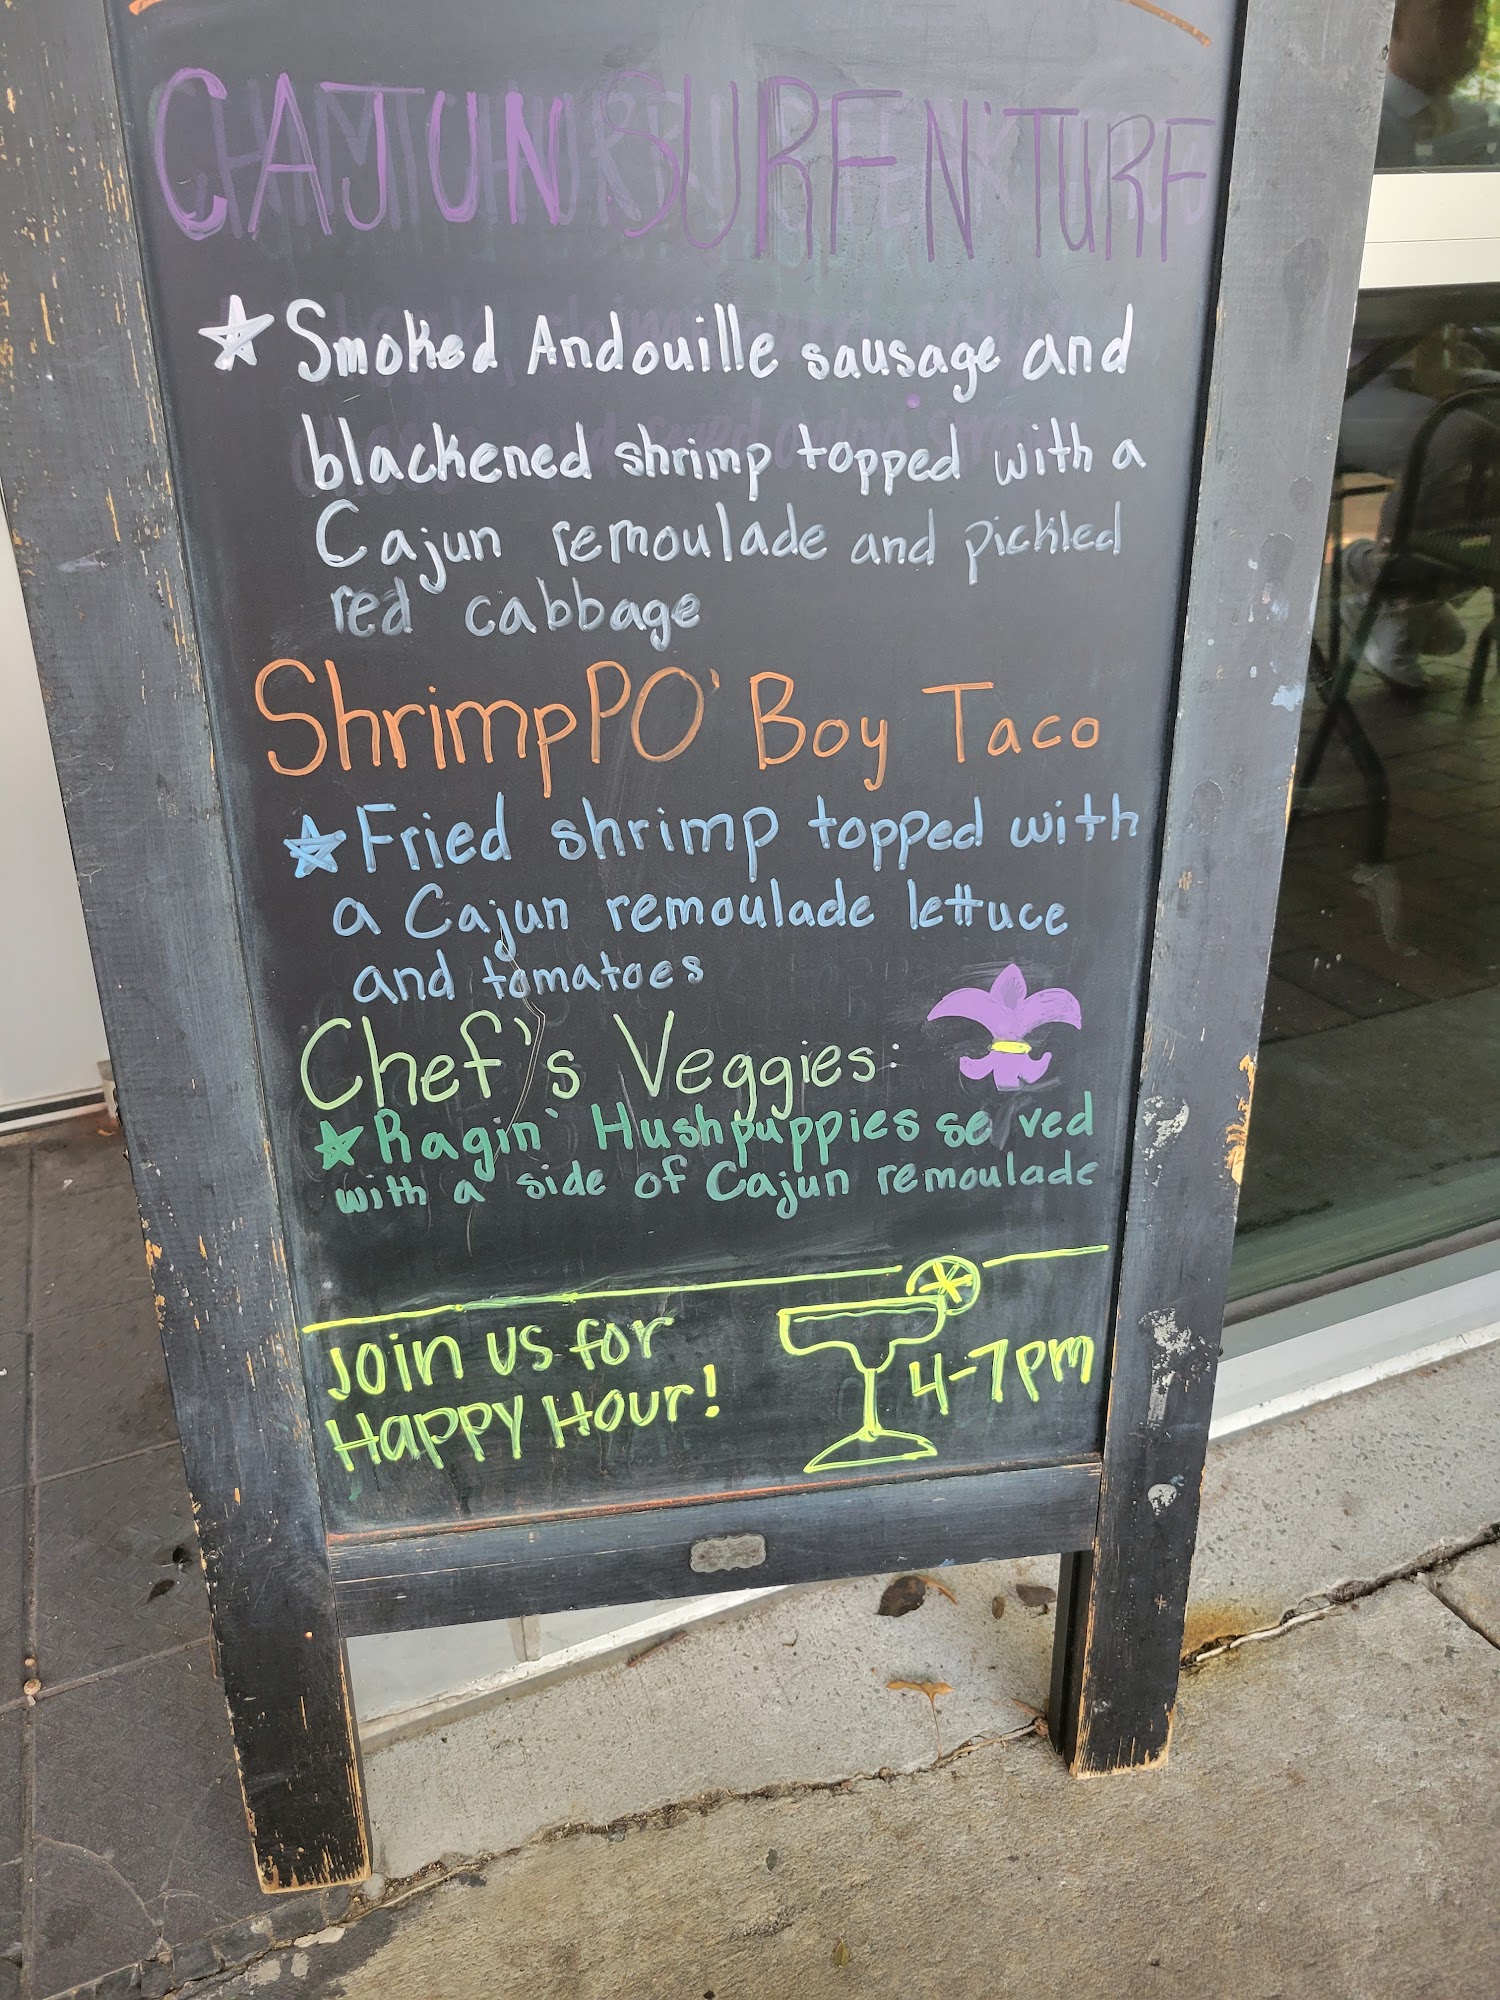 CAJUN SURF N' TURF
Smoked Andouille sausage and
blackened shrimp topped with a
Cajun remoulade and pickled
red cabbage
Shrimp PO' Boy Taco
Fried shrimp topped with
a Cajun remoulade lettuce
and tomatoes
Chef's Veggies:
Ragin' Hushpuppies se ved
with a side of Cajun remoulade
Join us for
Happy Hour!
4-7pm